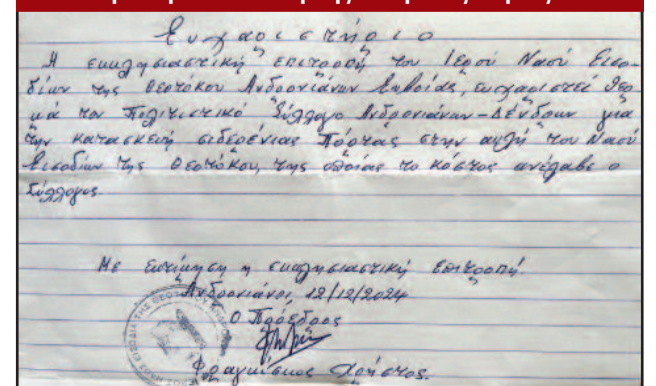 Ευχαριστήριο
Η εκκλησιαστική επιτροπή του Ιερού Ναού Εισο-
δίων της Θεοτόκου Ανδρονιάνων Ευβοίας, ευχαριστεί θερ-
μά τον Πολιτιστικό Σύλλογο Ανδρονιάνων-Δένδρων για
την κατασκευή σιδερένιας Πόρτας στην αυλή του Ναού
Εισοδίων της Θεοτόκου, της οποίας το κόστος ανέλαβε ο
Σύλλογος.
Με εκτίμηση η εκκλησιαστική επιτροπή.
Ανδρονιάνοι, 12/12/2024
Ο Πρόεδρος
Φραγκίσκος Χρήστος.